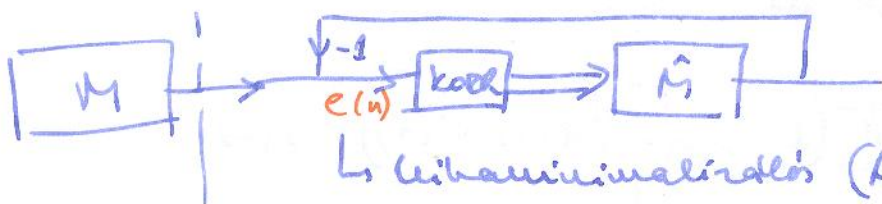 -1
M
KORR
M̂
e(n)
↳ hibaminimalizálás (